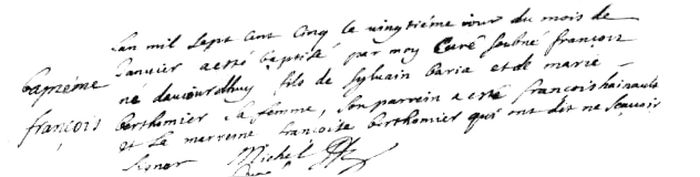 Lan mil sept cent cinq le vingtiéme iour du mois de
Janvier a esté baptisé par moy Curé soubné françois
bapteme né daujourdhuy fils de sylvain baria et de marie
françois berthomier sa femme, son parrein a esté francois hainault
et La marreine françoise berthomier qui ont dit ne sçavoir
signer Michel